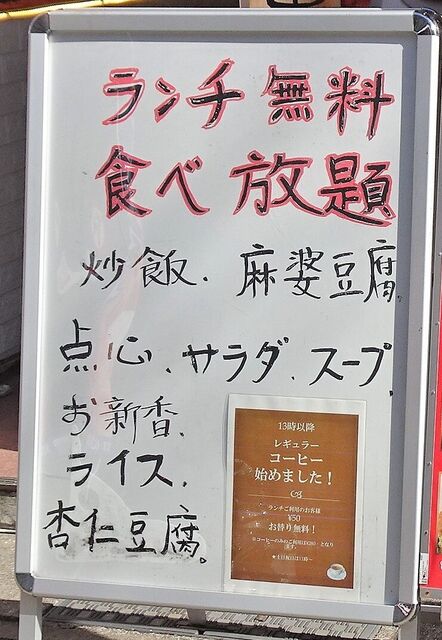 ランチ 無料
食べ 放題
炒飯、麻婆豆腐、
点心、サラダ、スープ、
お新香、
ライス、
杏仁豆腐。
13時以降
レギュラー
コーヒー
始めました!
ランチご利用のお客様
¥50
お替り無料!